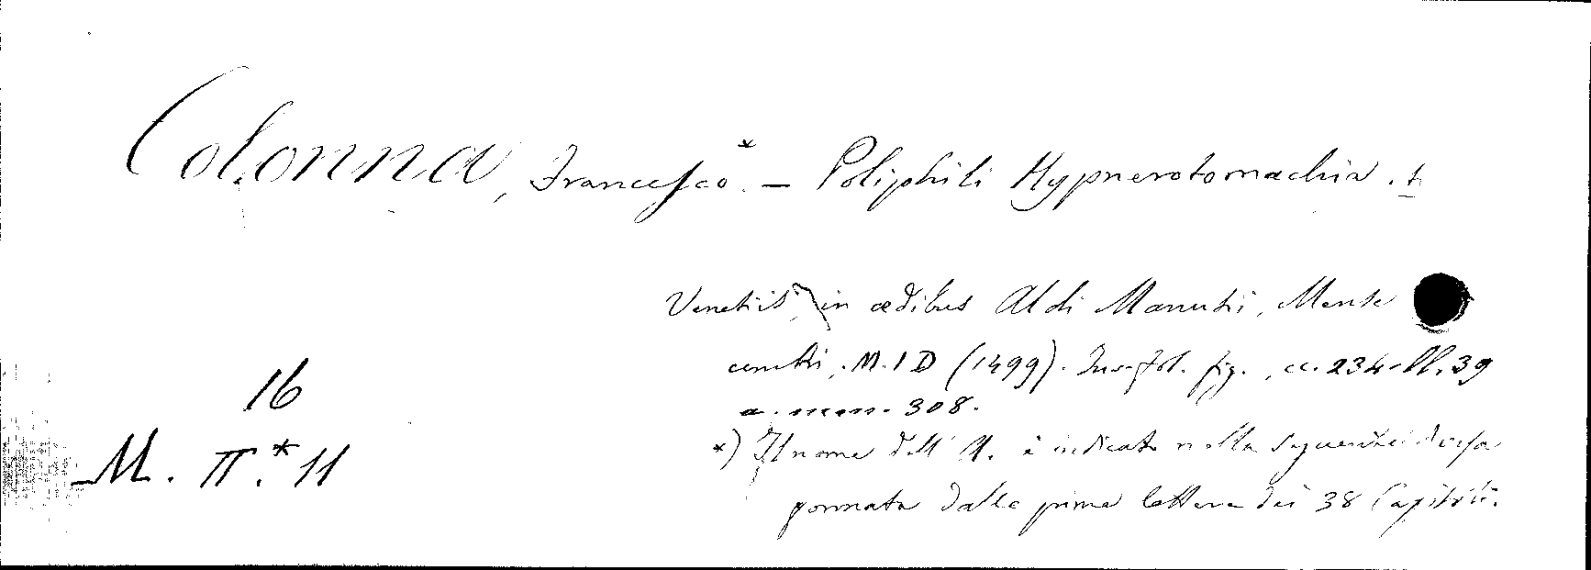 Colonna, Francesco.* — Poliphili Hypnerotomachia.
Venetiis, in ædibus Aldi Manutii, Mense
cembri, M.I D (1499). In-fol. fig., cc. 234 ll. 39
308.
16
M. II.* 11
*) Il nome dell' A. è indicato nella seguente
formata dalle prime lettere dei 38 Capitoli.